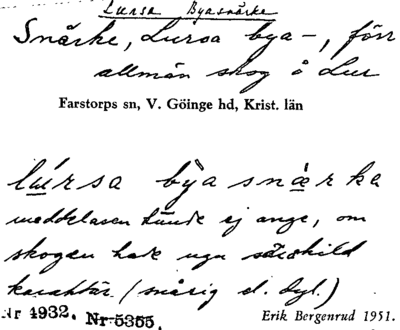 Lursa Byasnärke
Snärke, Lursa bya –, förr
allmän skog å Lur
Farstorps sn, V. Göinge hd, Krist. län
lúrsa bỳasnærka
meddelaren kunde ej ange, om
skogen hade ngn särskild
karaktär (snårig el. dyl.)
Nr 4932. Nr 5355.
Erik Bergenrud 1951.